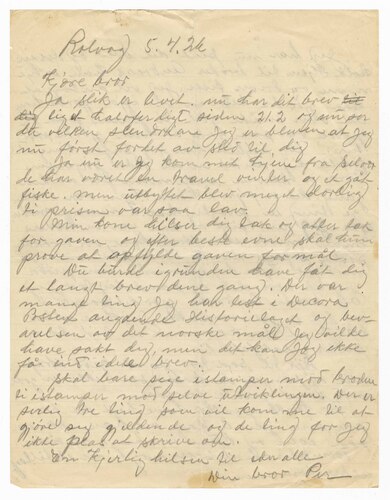 Rolvaag 5.4.26
Kjære bror
Ja slik er levet. nu har dit brev
ligt halvferdigt siden 21.2 og nu ser
du vilken slendriare Jeg er bleven at Jeg
nu først fordet av sted til dig
Ja nu er Jeg kom met hjem fra
de har været en travel vinter og et gåt
fiske. men utbytet blev meget dårlig
ti prisen var saa lav.
Min kone hilser dig tak og atter tak
for gaven og efter beste evne skal hun
prøve at opfylde gaven formål.
Du burde igrunden have fåt dig
et langt brev denne gang. Der var
mange ting Jeg har lest i Decora
Posten angående Historielaget og bev
arelsen av det norske mål Jeg vilde
have sakt dig, men det kan Jeg ikke
få ind i dette brev.
Skal bare sige istamper mod brodden
ti istamper mod selve utviklingen. Der er
særlig tre ting som vil kom me til at
gjøre seg gjeldende og de ting for Jeg
ikke plas at skrive om.
En kjerlig hilsen til eder alle
Din bror Per